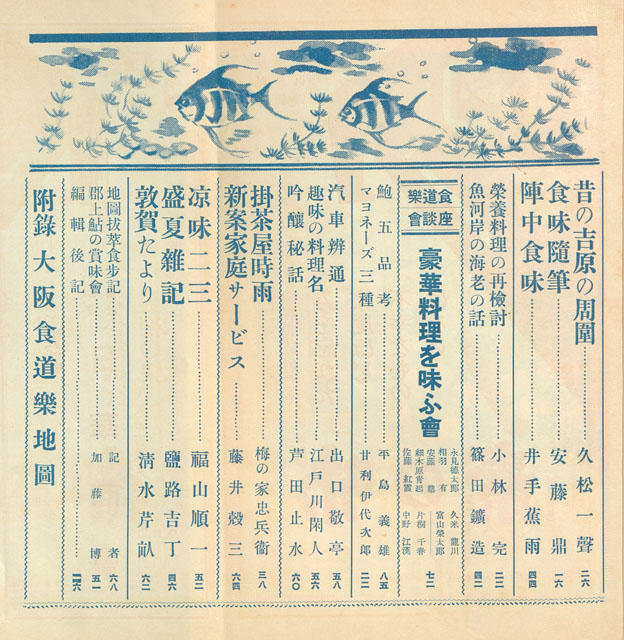 昔の吉原の周圍 久松一聲 二六
食味隨筆 安藤鼎 一六
陣中食味 井手蕉雨 四四
榮養料理の再檢討 小林完 二二
魚河岸の海老の話 篠田鑛造 四二
食道樂座談會
豪華料理を味ふ會 七二
永見德太郎 久米龍川
相羽有 富山榮太郎
安源慧 片桐千春
細木原靑起 中野江漢
佐藤紅霞
鮑五品考 平島義雄 八五
マヨネーズ三種 甘利伊代次郎 二二
汽車辨通 出口敬亭 五五
趣味の料理名 江戸川閑人 五六
吟釀秘話 芦田止水 六〇
掛茶屋時雨 梅の家忠兵衞 三八
新案家庭サービス 藤井毅三 六四
凉味二三 福山順一 五二
盛夏雜記 鹽路吉丁 四六
敦賀たより 清水芹畝 六二
地圖拔萃食步記 記者 六八
郡上鮎の賞味會 加藤博 五一
編輯後記
附錄大阪食道樂地圖